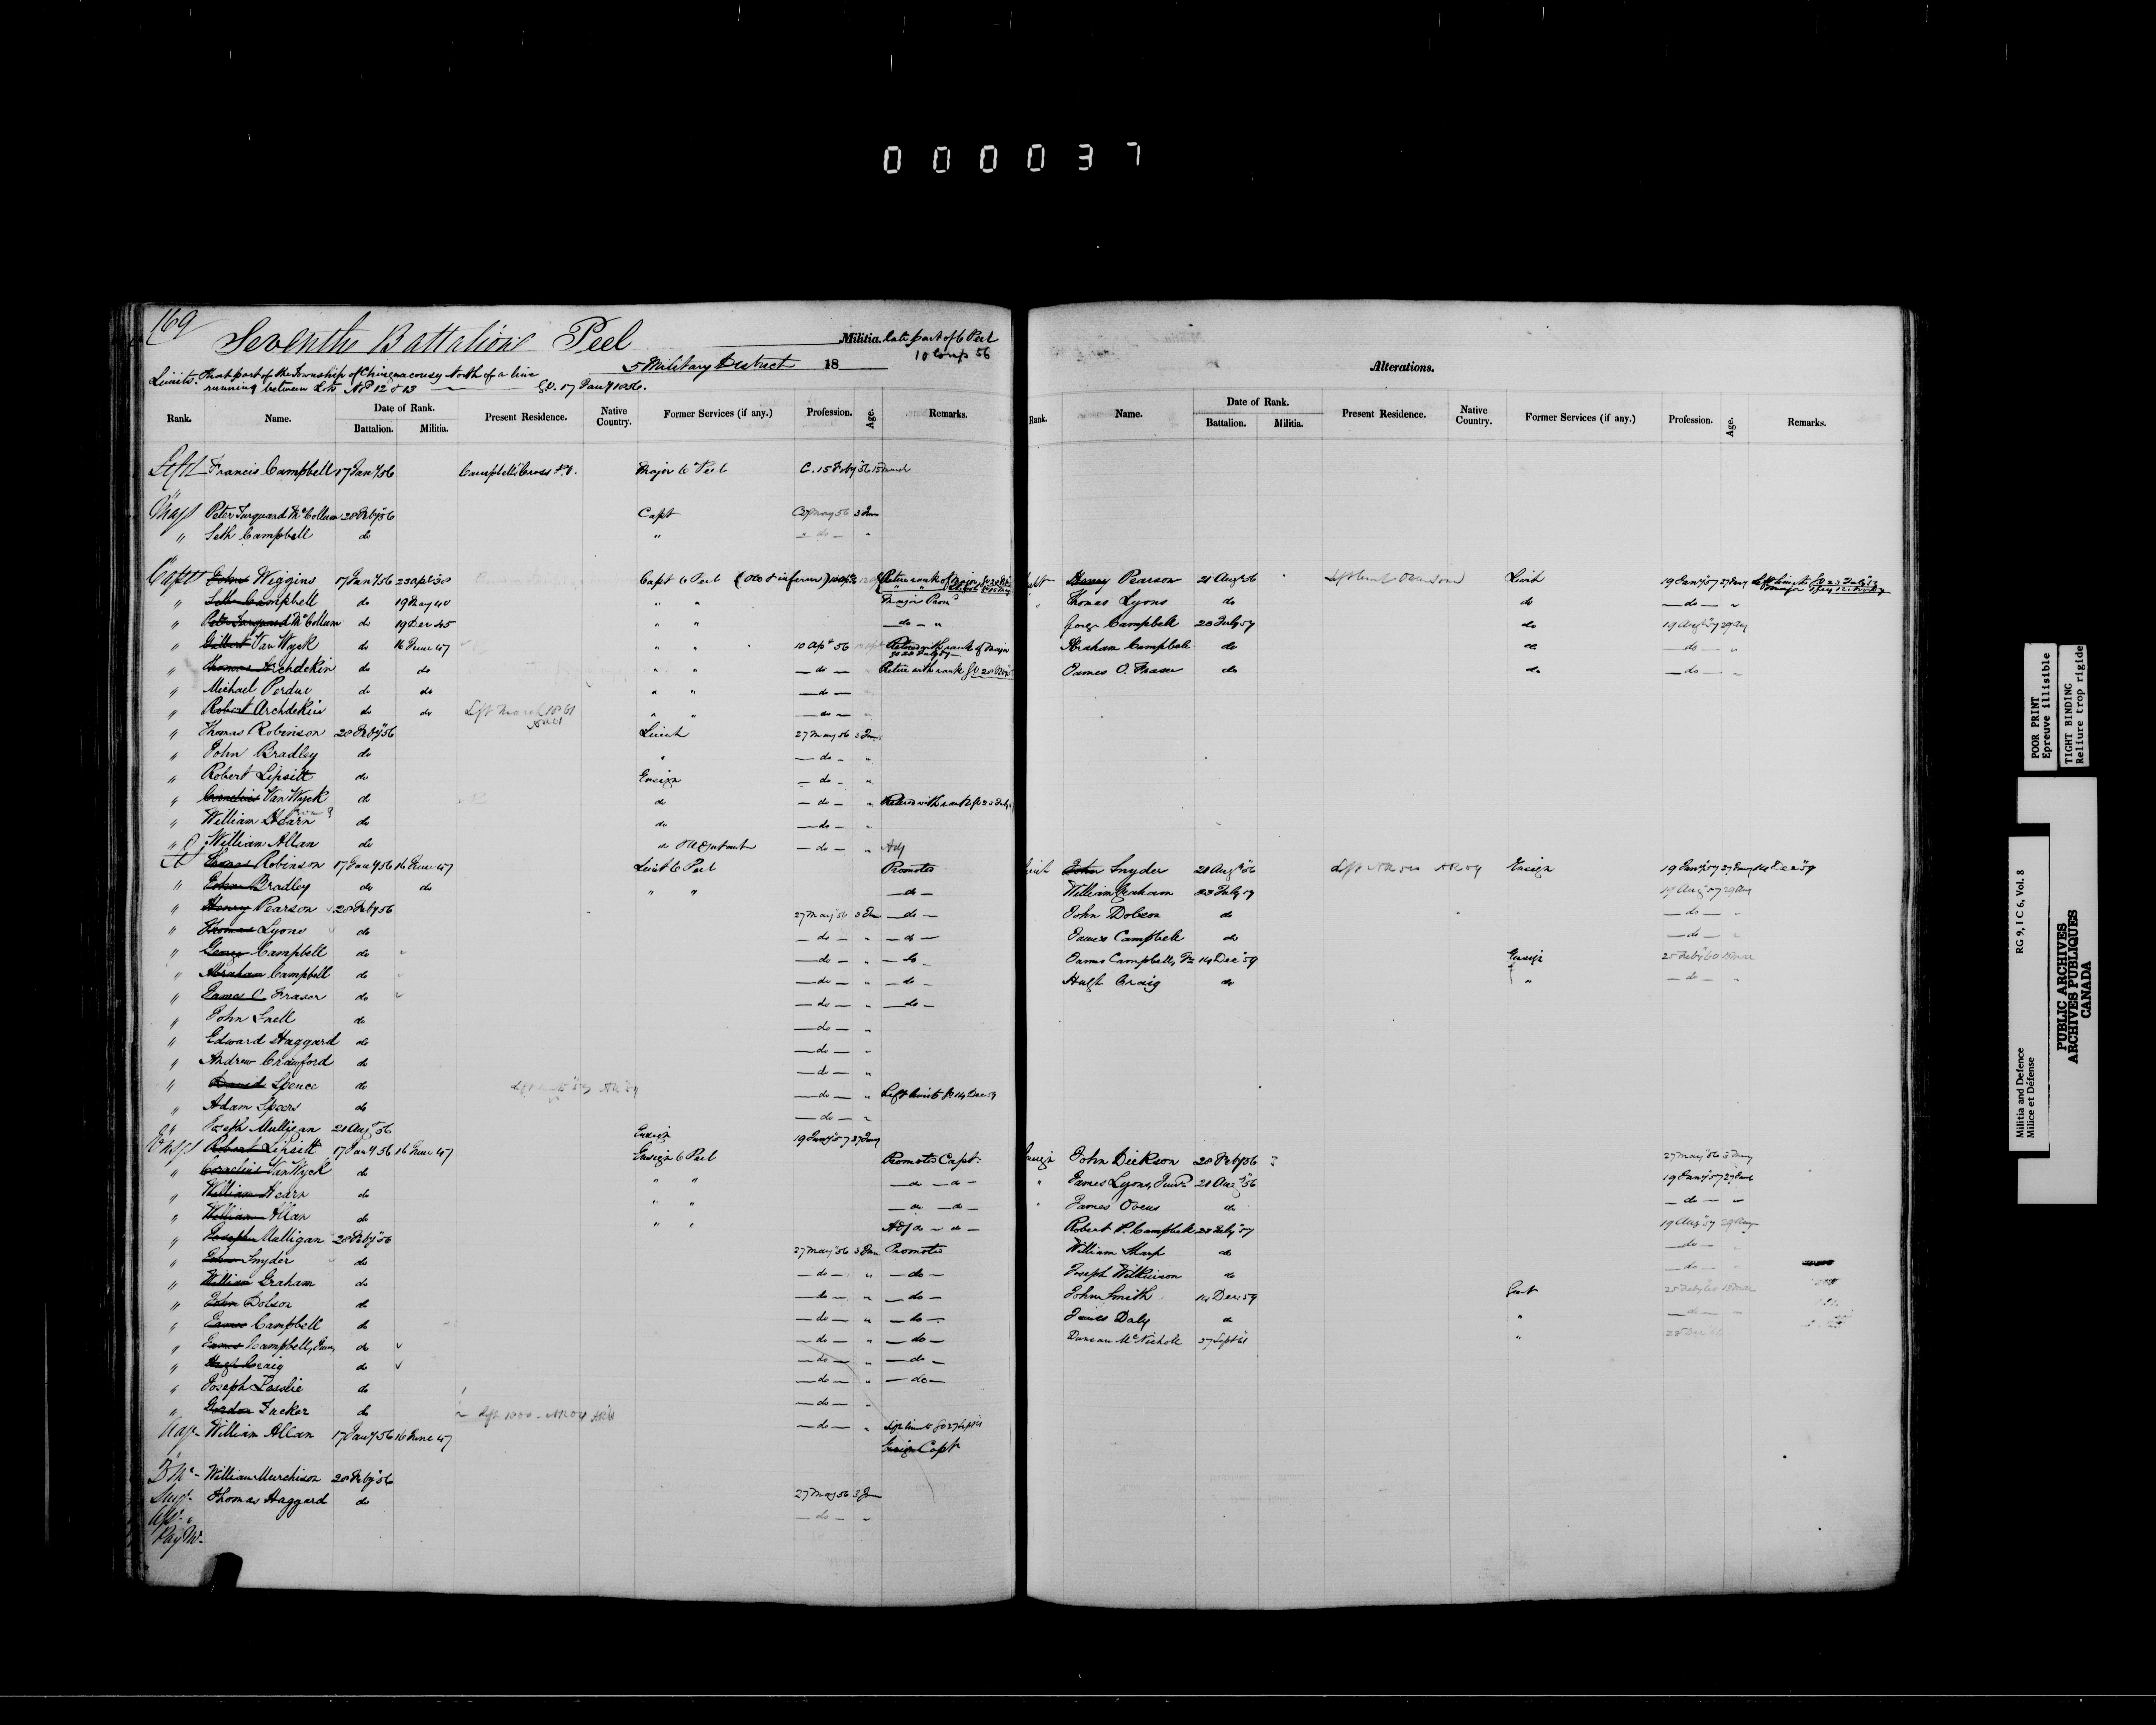 000037
169
Seventh Battalion Peel Militia. late part of 6 Peel
10 Comps 56
5 Military District 18
Limits. That part of the Township of Chinguacousy North of a line
running between Lots No 12 & 13 G.O. 17 Jany 1856.
Rank. Name. Date of Rank. Battalion. Militia. Present Residence. Native Country. Former Services (if any.) Profession. Age. Remarks.
Francis Campbell 17 Jany 56 Campbell's Cross P.O. Major 6 Peel C. 15 Feby 56
Peter McCollum 28 Feby 56 Capt 27 May 56
" Seth Campbell do " do
Capts John Wiggins 17 Jany 56 Capt 6 Peel (old & infirm)
" Seth Campbell do 19 May 40 " " Major
" McCollum do 19 Dec 45 " " do "
" Gilbert Van Wyck do 16 June 47 " " 10 Apl 56 Retired with rank of Major
" Thomas Archdekin do do " " do Retire with rank
" Michael Perdue do do " " do
" Robert Archdekin do do Left March 1861 " " do
" Thomas Robinson 28 Feby 56 Lieut 27 May 56
" John Bradley do " do "
" Robert Lipsitt do Ensign do "
" Cornelius Van Wyck do do do " Retired with rank
" William Hearn do do do "
" William Allan do do & Adjutant do " Adj
Thomas Robinson 17 Jany 56 16 June 47 Lieut 6 Peel Promoted
" John Bradley do do " " do
" Henry Pearson 28 Feby 56 27 May 56 do
" Thomas Lyons do do " do
" George Campbell do do " do
" Abraham Campbell do do " do
" James C. Fraser do do " do
" John Snell do do "
" Edward Haggard do do "
" Andrew Crawford do do "
" David Spence do do " Left limits 14 Dec 59
" Adam Speers do do "
" Joseph Mulligan 21 Augt 56 Ensign 19 Jany 57
Robert Lipsitt 17 Jany 56 16 June 47 Ensign 6 Peel Promoted Capt.
" Cornelius Van Wyck do " " do do
" William Hearn do " " do do
" William Allan do " " Adj do do
" Joseph Mulligan 28 Feby 56 27 May 56 Promoted
" John Snyder do do " do
" William Graham do do " do
" John Dobson do do " do
" James Campbell do do " do
" James Campbell, Junr do do " do
" Hugh Craig do do " do
" Joseph Lesslie do do "
" Gordon Tucker do do "
William Allan 17 Jany 56 16 June 47 Ensign Capt
William Murchison 28 Feby 56
Thomas Haggard do 27 May 56
do
Pay Mr.
Alterations.
Rank. Name. Date of Rank. Battalion. Militia. Present Residence. Native Country. Former Services (if any.) Profession. Age. Remarks.
Henry Pearson 21 Augt 56 Lieut 19 Jany 57
" Thomas Lyons do do do "
George Campbell 23 July 57 do 19 Augt 57
Abraham Campbell do do do "
James C. Fraser do do do
John Snyder 21 Augt 56 Ensign 19 Jany 57 14 Dec 59
William Graham 23 July 57 19 Aug 57
John Dobson do do
James Campbell do do
James Campbell, Jr 14 Dec 59 Ensign 25 Feby 60
Hugh Craig do " do
Ensign John Dickson 28 Feby 56 27 May 56
" James Lyons, Junr 21 Augt 56 19 Jany 57
" James Ovens do do
Robert P. Campbell 23 July 57 19 Aug 57
William Sharp do do
Joseph Wilkinson do do
John Smith 14 Dec 59 Gent 25 Feby 60
James Daly do " do
Duncan McNichol 27 Sept 61 "
POOR PRINT
Epreuve illisible
TIGHT BINDING
Reliure trop rigide
Militia and Defence
Milice et Défense
RG 9, I C 6, Vol. 8
PUBLIC ARCHIVES
ARCHIVES PUBLIQUES
CANADA